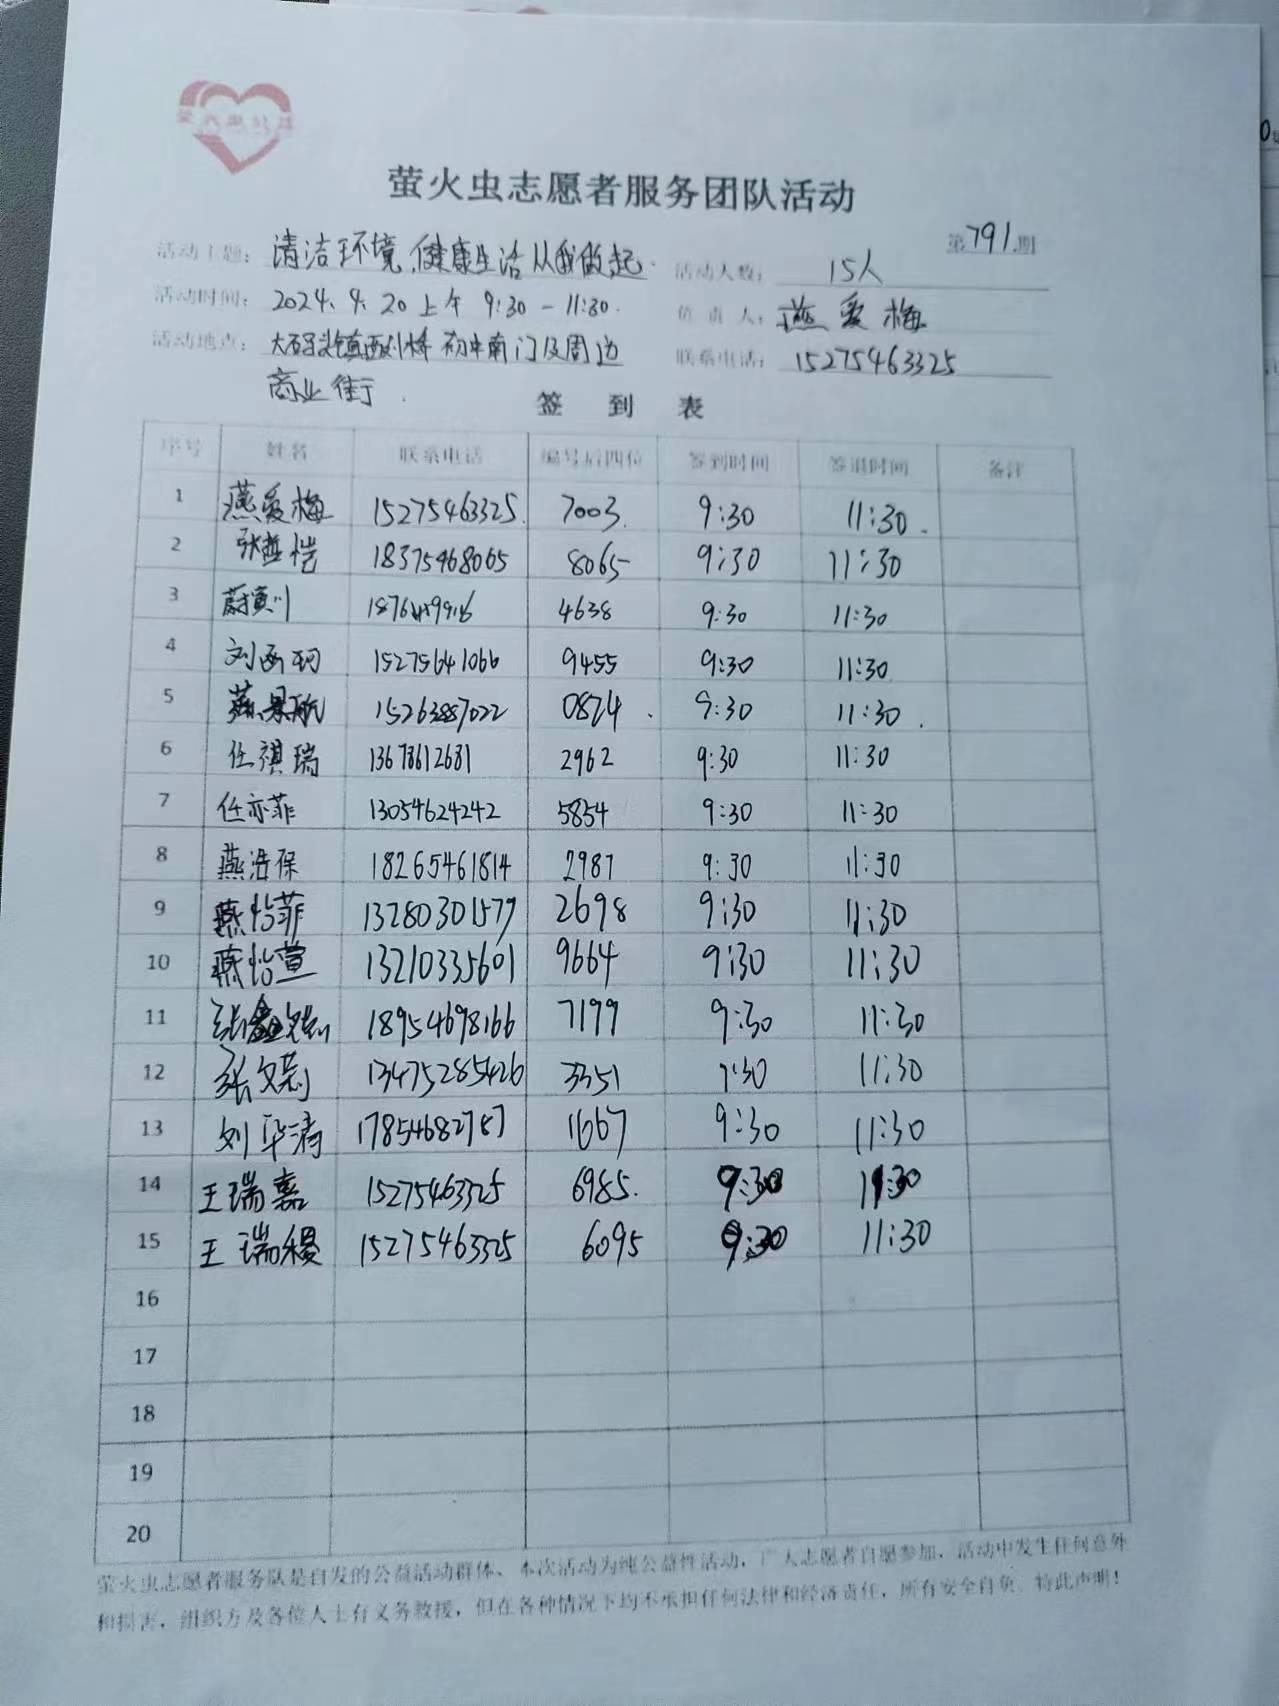 萤火虫志愿者服务团队活动
第791期
活动主题：清洁环境，健康生活从我做起. 活动人数：15人
活动时间：2024.4.20上午 9:30－11:30. 负责人：燕爱梅
活动地点：大码头镇西刘桥初中南门及周边 联系电话：15275463325
商业街.
签到表
序号 姓名 联系电话 编号后四位 签到时间 签退时间 备注
1 燕爱梅 15275463325 7003 9:30 11:30
2 张哲恺 18375468065 8065 9:30 11:30
3 蔚寅川 4638 9:30 11:30
4 刘西玥 15275641066 9455 9:30 11:30
5 燕果航 15263887022 0824 9:30 11:30
6 任祺瑞 13678612681 2962 9:30 11:30
7 任亦菲 13054624242 5854 9:30 11:30
8 燕浩保 18265461814 2987 9:30 11:30
9 燕怡菲 13280301579 2698 9:30 11:30
10 燕怡萱 13210335601 9664 9:30 11:30
11 张鑫 18954698166 7199 9:30 11:30
12 张文莉 13475285426 3351 9:30 11:30
13 刘华清 17854682787 1667 9:30 11:30
14 王瑞嘉 15275463325 6985 9:30 11:30
15 王瑞稷 15275463325 6095 9:30 11:30
16
17
18
19
20
萤火虫志愿者服务队是自发的公益活动群体、本次活动为纯公益性活动，广大志愿者自愿参加，活动中发生任何意外
和损害，组织方及各位人士有义务救援，但在各种情况下均不承担任何法律和经济责任，所有安全自负。特此声明！